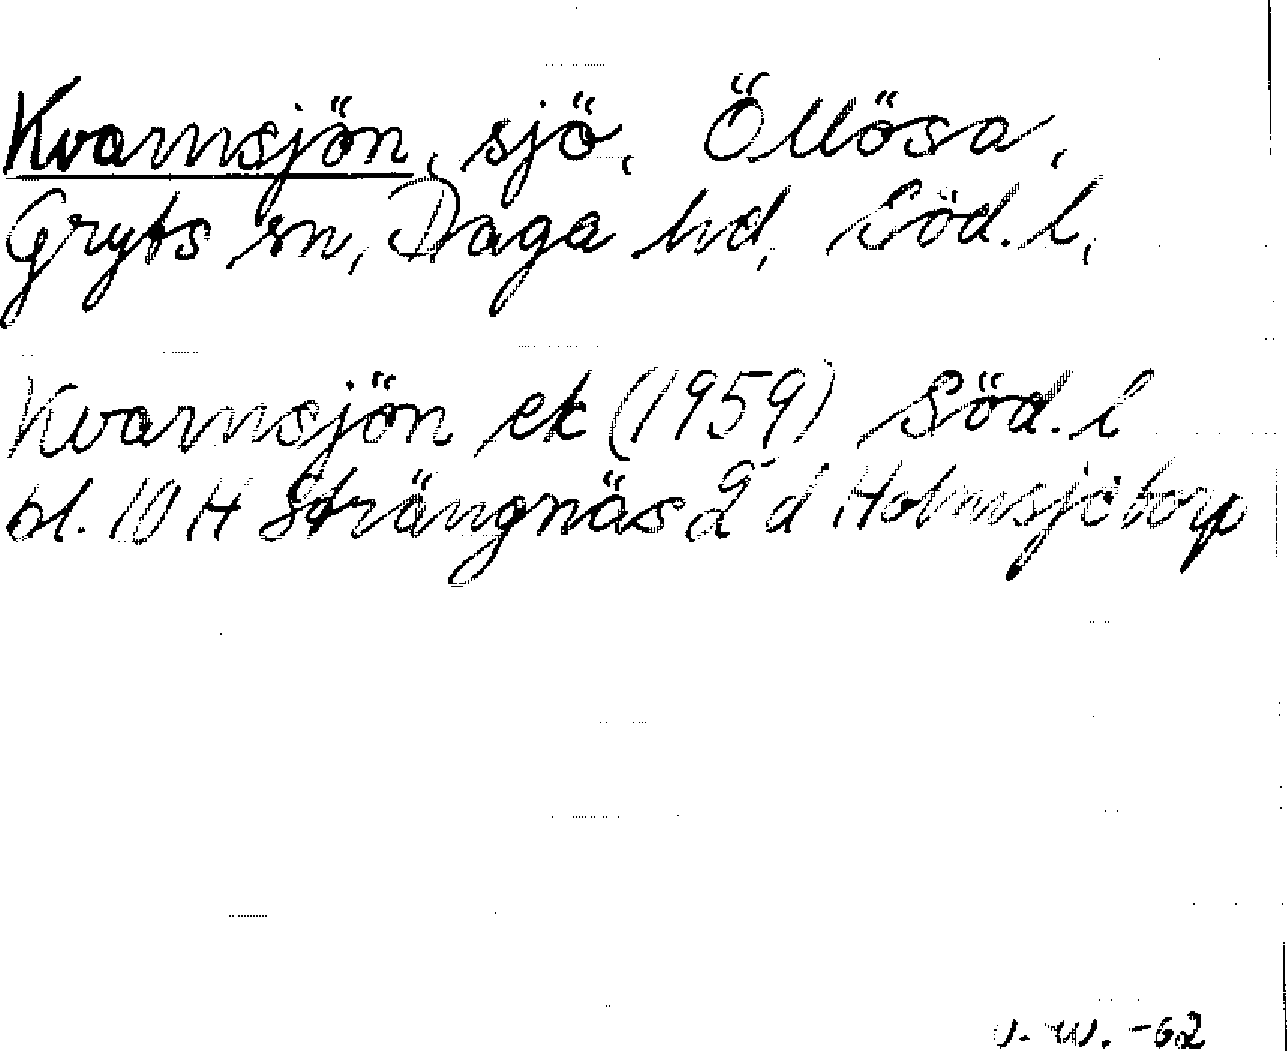 Kvarnsjön, sjö, Öllösa,
Gryts sn, Daga hd, Söd. l,
Kvarnsjön ek (1959) Söd. l
bl. 10 H Strängnäs 2 d Holmsjötorp
J. W. -62